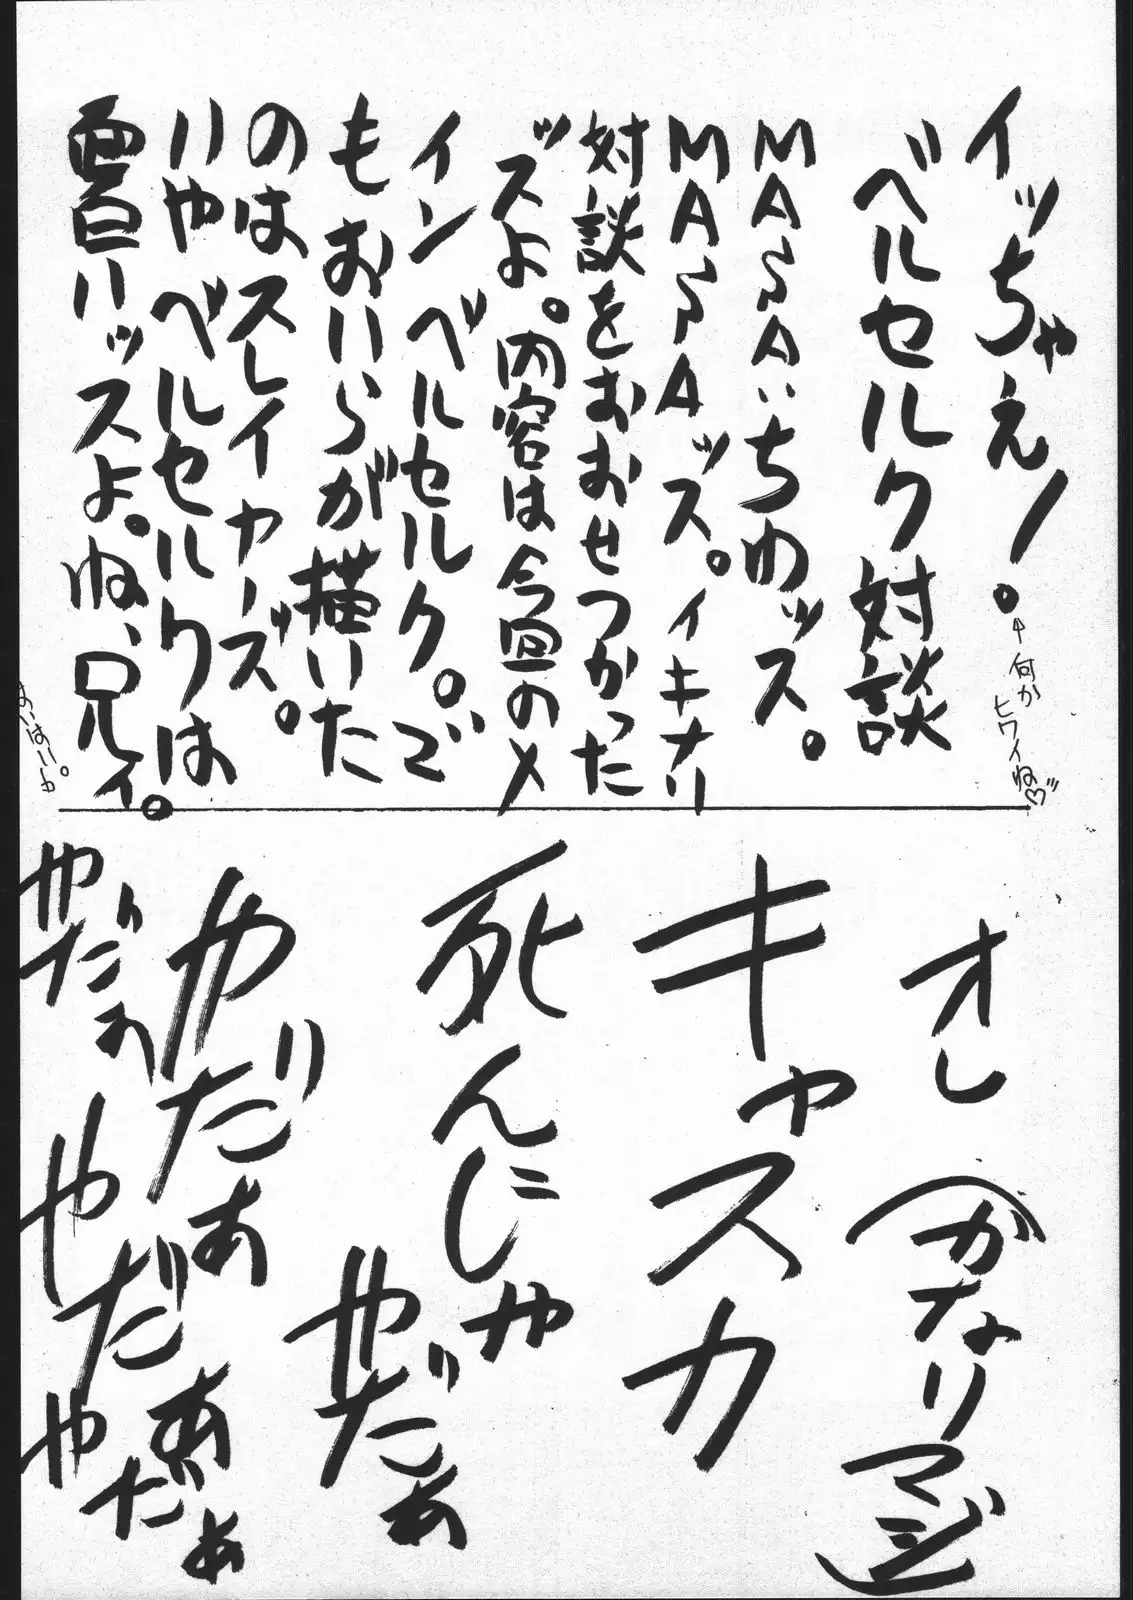 イッちゃえ!。
↑何か
ヒワイね♡
ベルセルク対談
MASAいちのッス。
MASAッス。イキナリ
対談をおおせつかった
ッスよ。内容は今回のメ
インベルセルク。で
もおいらが描いた
のはスレイヤーズ。
いやベルセルクは。
いッスよ。ね、兄ィ。
はいはい。
オレ
(かなりマジ)
キャスカ
死んじゃ
やだぁ
やだぁ
やだぁ
やだぁ
やだぁ